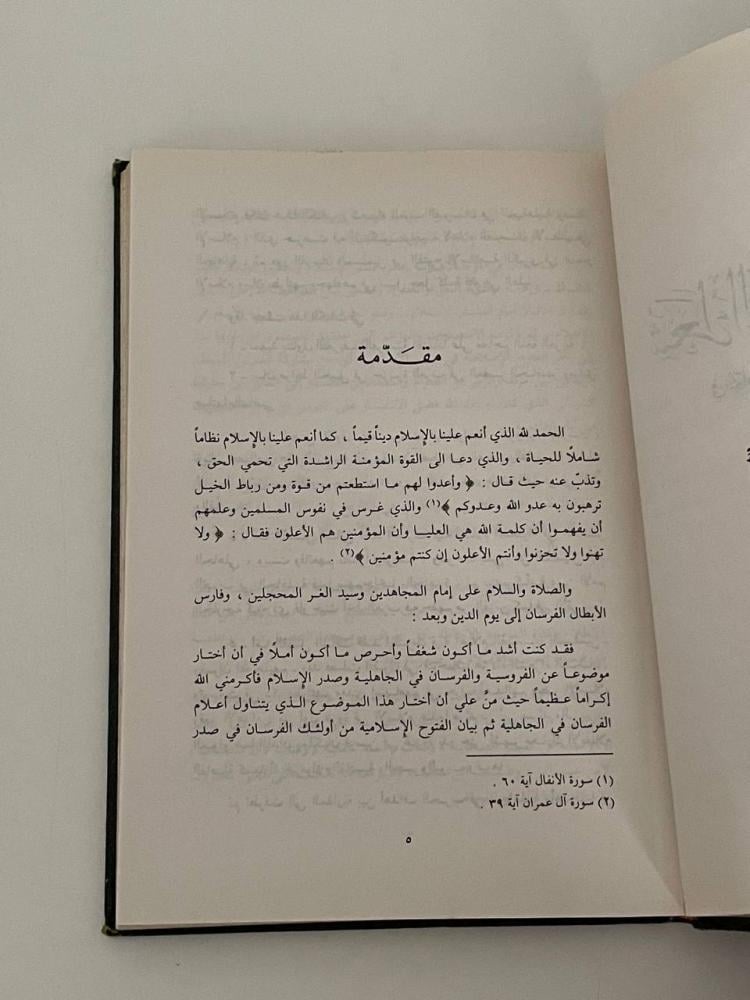 مقدّمة
الحمد لله الذي أنعم علينا بالإسلام ديناً قيماً ، كما أنعم علينا بالإسلام نظاماً
شاملًا للحياة ، والذي دعا الى القوة المؤمنة الراشدة التي تحمي الحق ،
وتذبّ عنه حيث قال : ﴿ وأعدوا لهم ما استطعتم من قوة ومن رباط الخيل
ترهبون به عدو الله وعدوكم ﴾(١) والذي غرس في نفوس المسلمين وعلمهم
أن يفهموا أن كلمة الله هي العليا وأن المؤمنين هم الأعلون فقال : ﴿ ولا
تهنوا ولا تحزنوا وأنتم الأعلون إن كنتم مؤمنين ﴾(٢) .
والصلاة والسلام على إمام المجاهدين وسيد الغر المحجلين ، وفارس
الأبطال الفرسان إلى يوم الدين وبعد :
فقد كنت أشد ما أكون شغفاً وأحرص ما أكون أملًا في أن أختار
موضوعاً عن الفروسية والفرسان في الجاهلية وصدر الإسلام فأكرمني الله
إكراماً عظيماً حيث منَّ علي أن أختار هذا الموضوع الذي يتناول أعلام
الفرسان في الجاهلية ثم بيان الفتوح الإسلامية من أولئك الفرسان في صدر
(١) سورة الأنفال آية ٦٠ .
(٢) سورة آل عمران آية ٣٩ .
٥